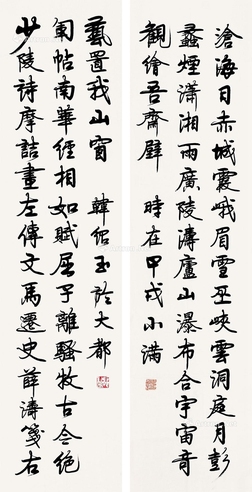 滄海日赤城霞峨眉雪巫峽雲洞庭月彭
蠡煙瀟湘雨廣陵濤廬山瀑布合宇宙奇
觀繪吾齋壁 時在甲戌小滿
少陵詩摩詰畫左傳文馬遷史薛濤箋右
軍帖南華經相如賦屈子離騷收古今絕
藝置我山窗 韓紹玉於大都